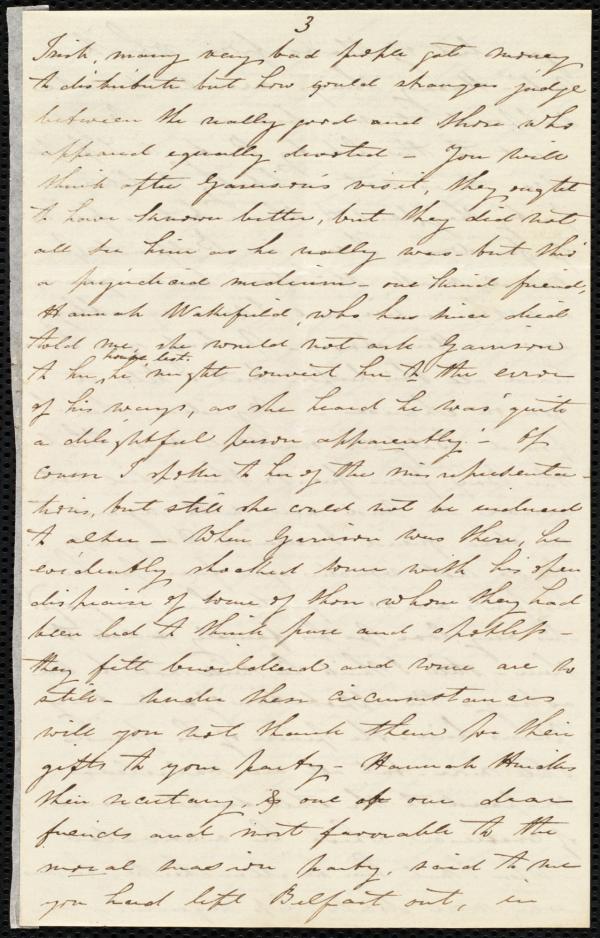 3
Irish, many very bad people got money
to distribute but how could strangers judge
between the really good and those who
appeared equally devoted - You will
think after Garrison's visit, they ought
to have known better, but they did not
all see him as he really was - but thro'
a prejudiced medium - one kind friend,
Hannah Wakefield, who has since died
told me, she would not ask Garrison
to her house lest he might convert her to the error
of his ways, as she heard he was 'quite
a delightful person apparently' - Of
course I spoke to her of the misrepresenta-
tions, but still she could not be induced
to alter - When Garrison was there, he
evidently shocked some with his open
dispraise of some of those whom they had
been led to think pure and spotless -
they felt bewildered and some are so
still - under these circumstances
will you not thank them for their
gifts to your party - Hannah
their secretary, & one of our dear
friends and most favorable to the
moral suasion party, said to me
you had left Belfast out, in